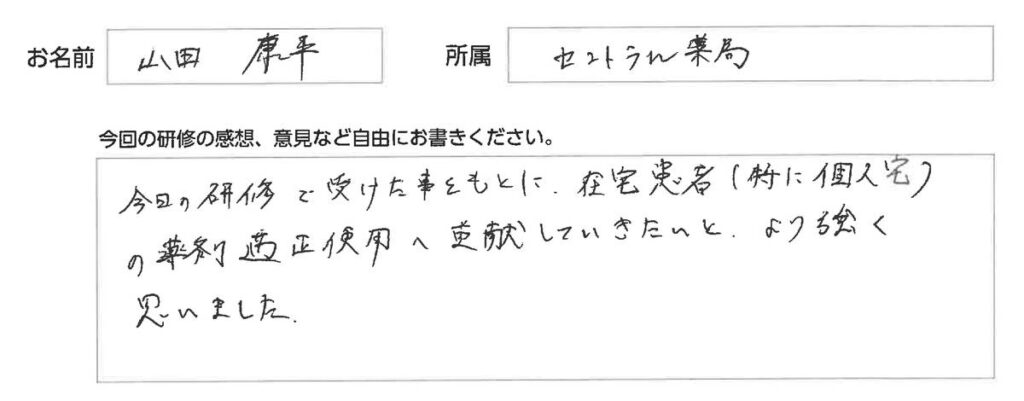 お名前 山田 康平 所属 セントラル薬局
今回の研修の感想、意見など自由にお書きください。
今日の研修で受けた事をもとに、在宅患者(特に個人宅)
の薬剤適正使用へ貢献していきたいと、より強く
思いました.